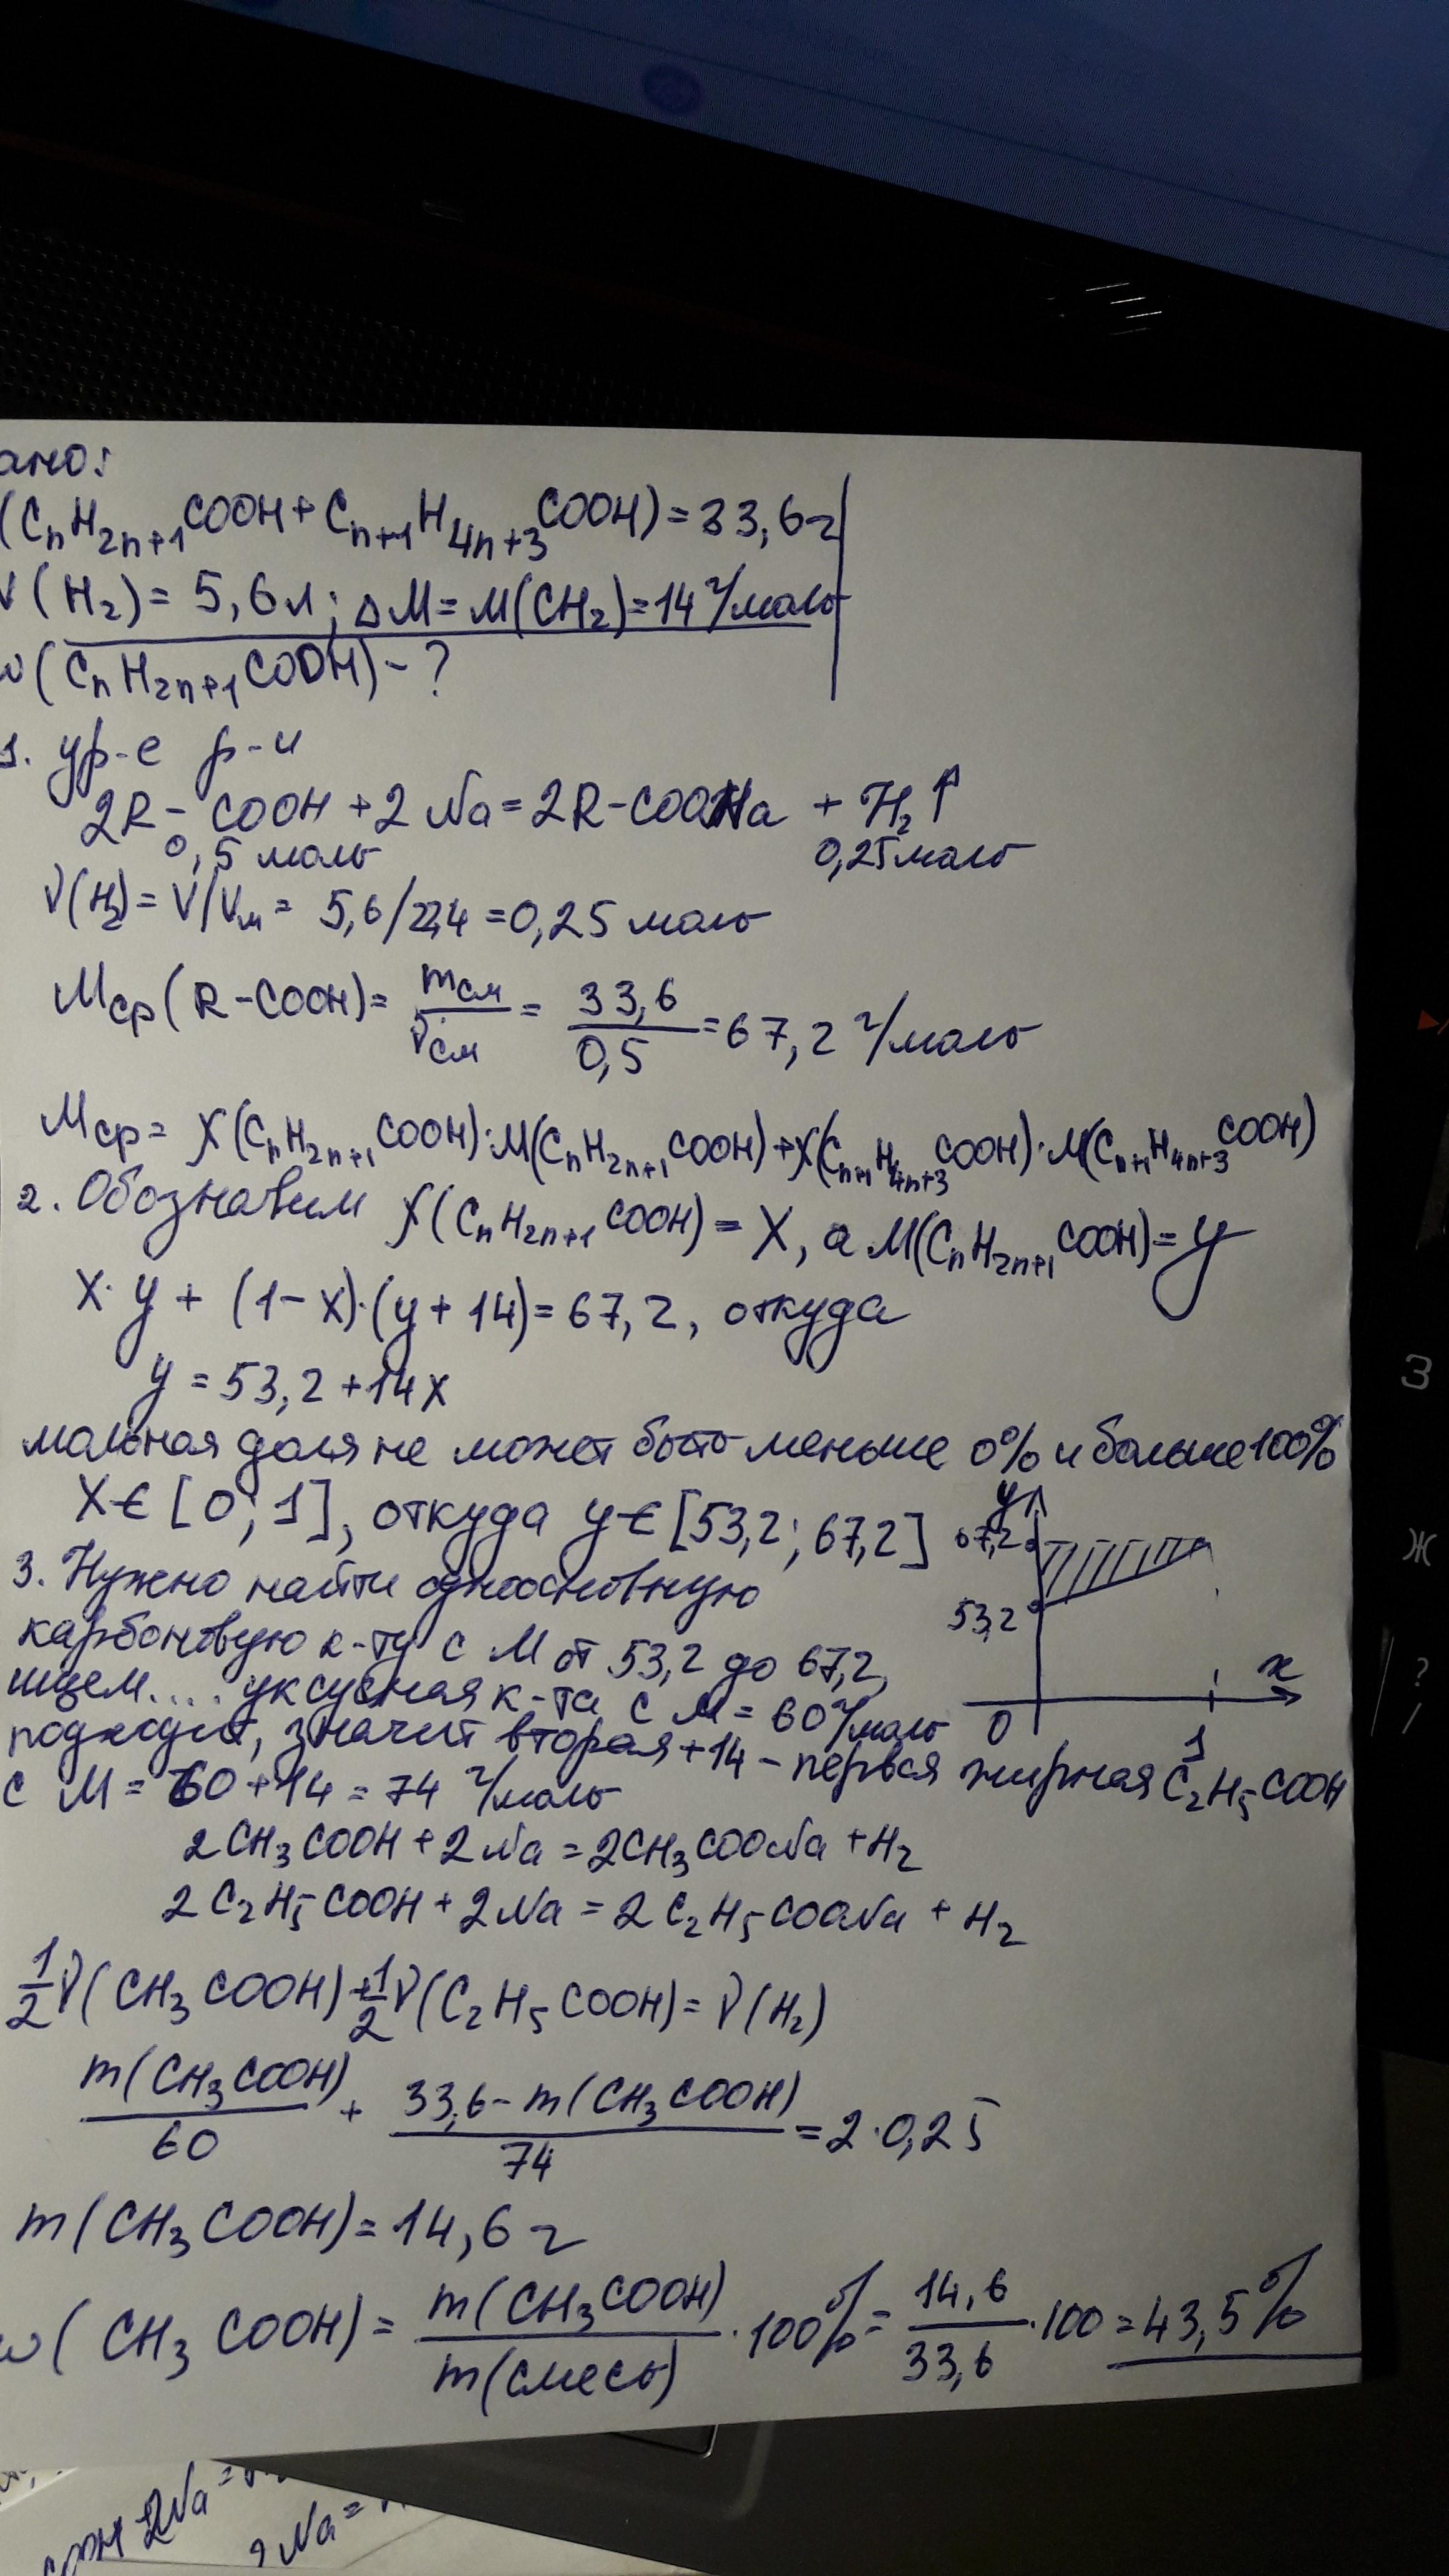 ано:
(CnH2n+1COOH + Cn+1H4n+3COOH) = 33,6г
V(H2) = 5,6л; ΔM = M(CH2) = 14 г/моль
ω(CnH2n+1COOH) - ?
1. ур-е р-и
2R-COOH + 2Na = 2R-COONa + H2↑
0,5 моль 0,25 моль
ν(H2) = V/Vм = 5,6/22,4 = 0,25 моль
Mср(R-COOH) = mсм/νсм = 33,6/0,5 = 67,2 г/моль
Mср = χ(CnH2n+1COOH)·M(CnH2n+1COOH) + χ(Cn+1H4n+3COOH)·M(Cn+1H4n+3COOH)
2. Обозначим χ(CnH2n+1COOH) = X, а M(CnH2n+1COOH) = y
X·y + (1-X)·(y+14) = 67,2, откуда
y = 53,2 + 14X
мольная доля не может быть меньше 0% и больше 100%
X ∈ [0; 1], откуда y ∈ [53,2; 67,2]
y
67,2
53,2
0
1
x
3. Нужно найти одноосновную
карбоновую к-ту с M от 53,2 до 67,2,
ищем.... уксусная к-та с M = 60 г/моль
подходит, значит вторая +14 - первая жирная C2H5COOH
с M = 60+14 = 74 г/моль
2CH3COOH + 2Na = 2CH3COONa + H2
2C2H5COOH + 2Na = 2C2H5COONa + H2
1/2 ν(CH3COOH) + 1/2 ν(C2H5COOH) = ν(H2)
m(CH3COOH)/60 + 33,6 - m(CH3COOH)/74 = 2·0,25
m(CH3COOH) = 14,6 г
ω(CH3COOH) = m(CH3COOH)/m(смесь) · 100% = 14,6/33,6 · 100 = 43,5%
COOH 2Na =
2Na =
З
Ж
?
/